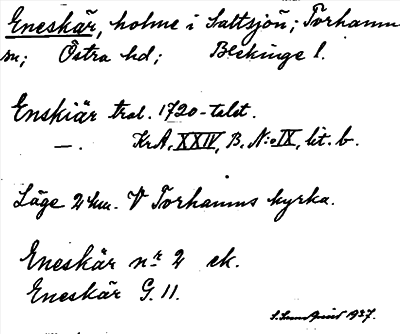 Eneskär, holme i Saltsjön; Torhamn
sn; Östra hd; Blekinge l.
Enskiär trol. 1720-talet.
—. KrA. XXIV, B. N:o IX, lit. b.
Läge 2 km. V Torhamns kyrka.
Eneskär nr 2 ek.
Eneskär G. 11.
1937.